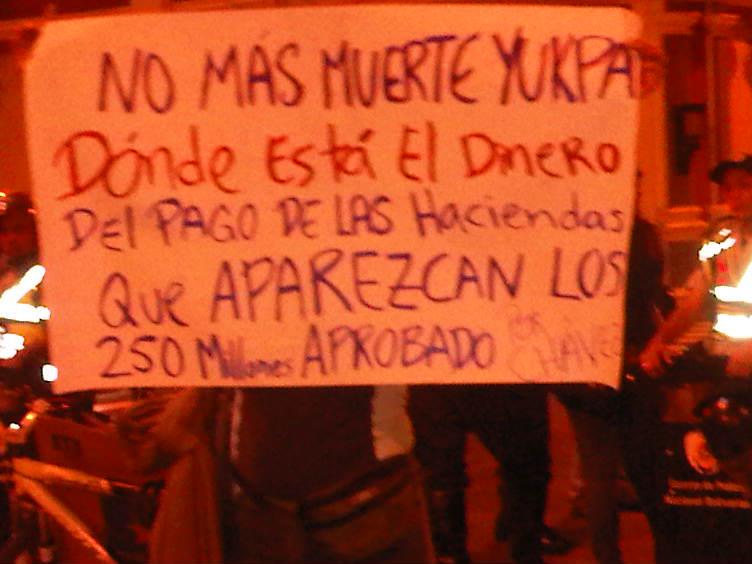 NO MÁS MUERTE YUKPA
Dónde Está El Dinero
Del PAGO DE LAS Haciendas
Que APAREZCAN LOS
250 Millones APROBADO POR
CHÁVEZ